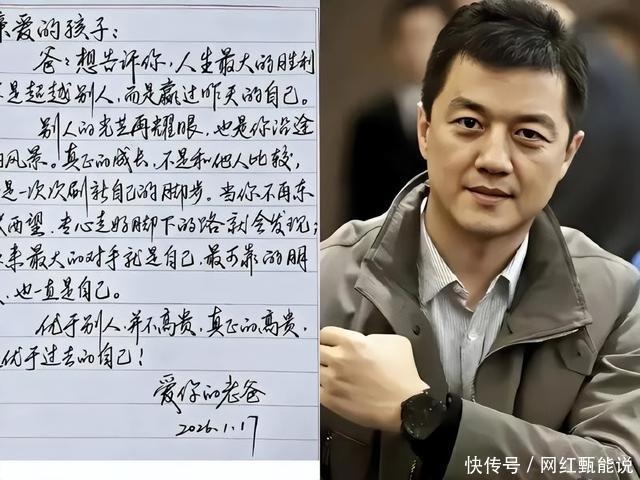 亲爱的孩子：
爸：想告诉你，人生最大的胜利
是超越别人，而是赢过昨天的自己。
别人的光芒再耀眼，也是你沿途
风景。真正的成长，不是和他人比较，
是一次次刷新自己的脚步。当你不再东
西望，专心走好脚下的路就会发现：
来最大的对手就是自己，最可靠的朋
，也一直是自己。
优于别人，并不高贵，真正的高贵，
优于过去的自己！
爱你的老爸
2026.1.17
快传号／网红甄能说